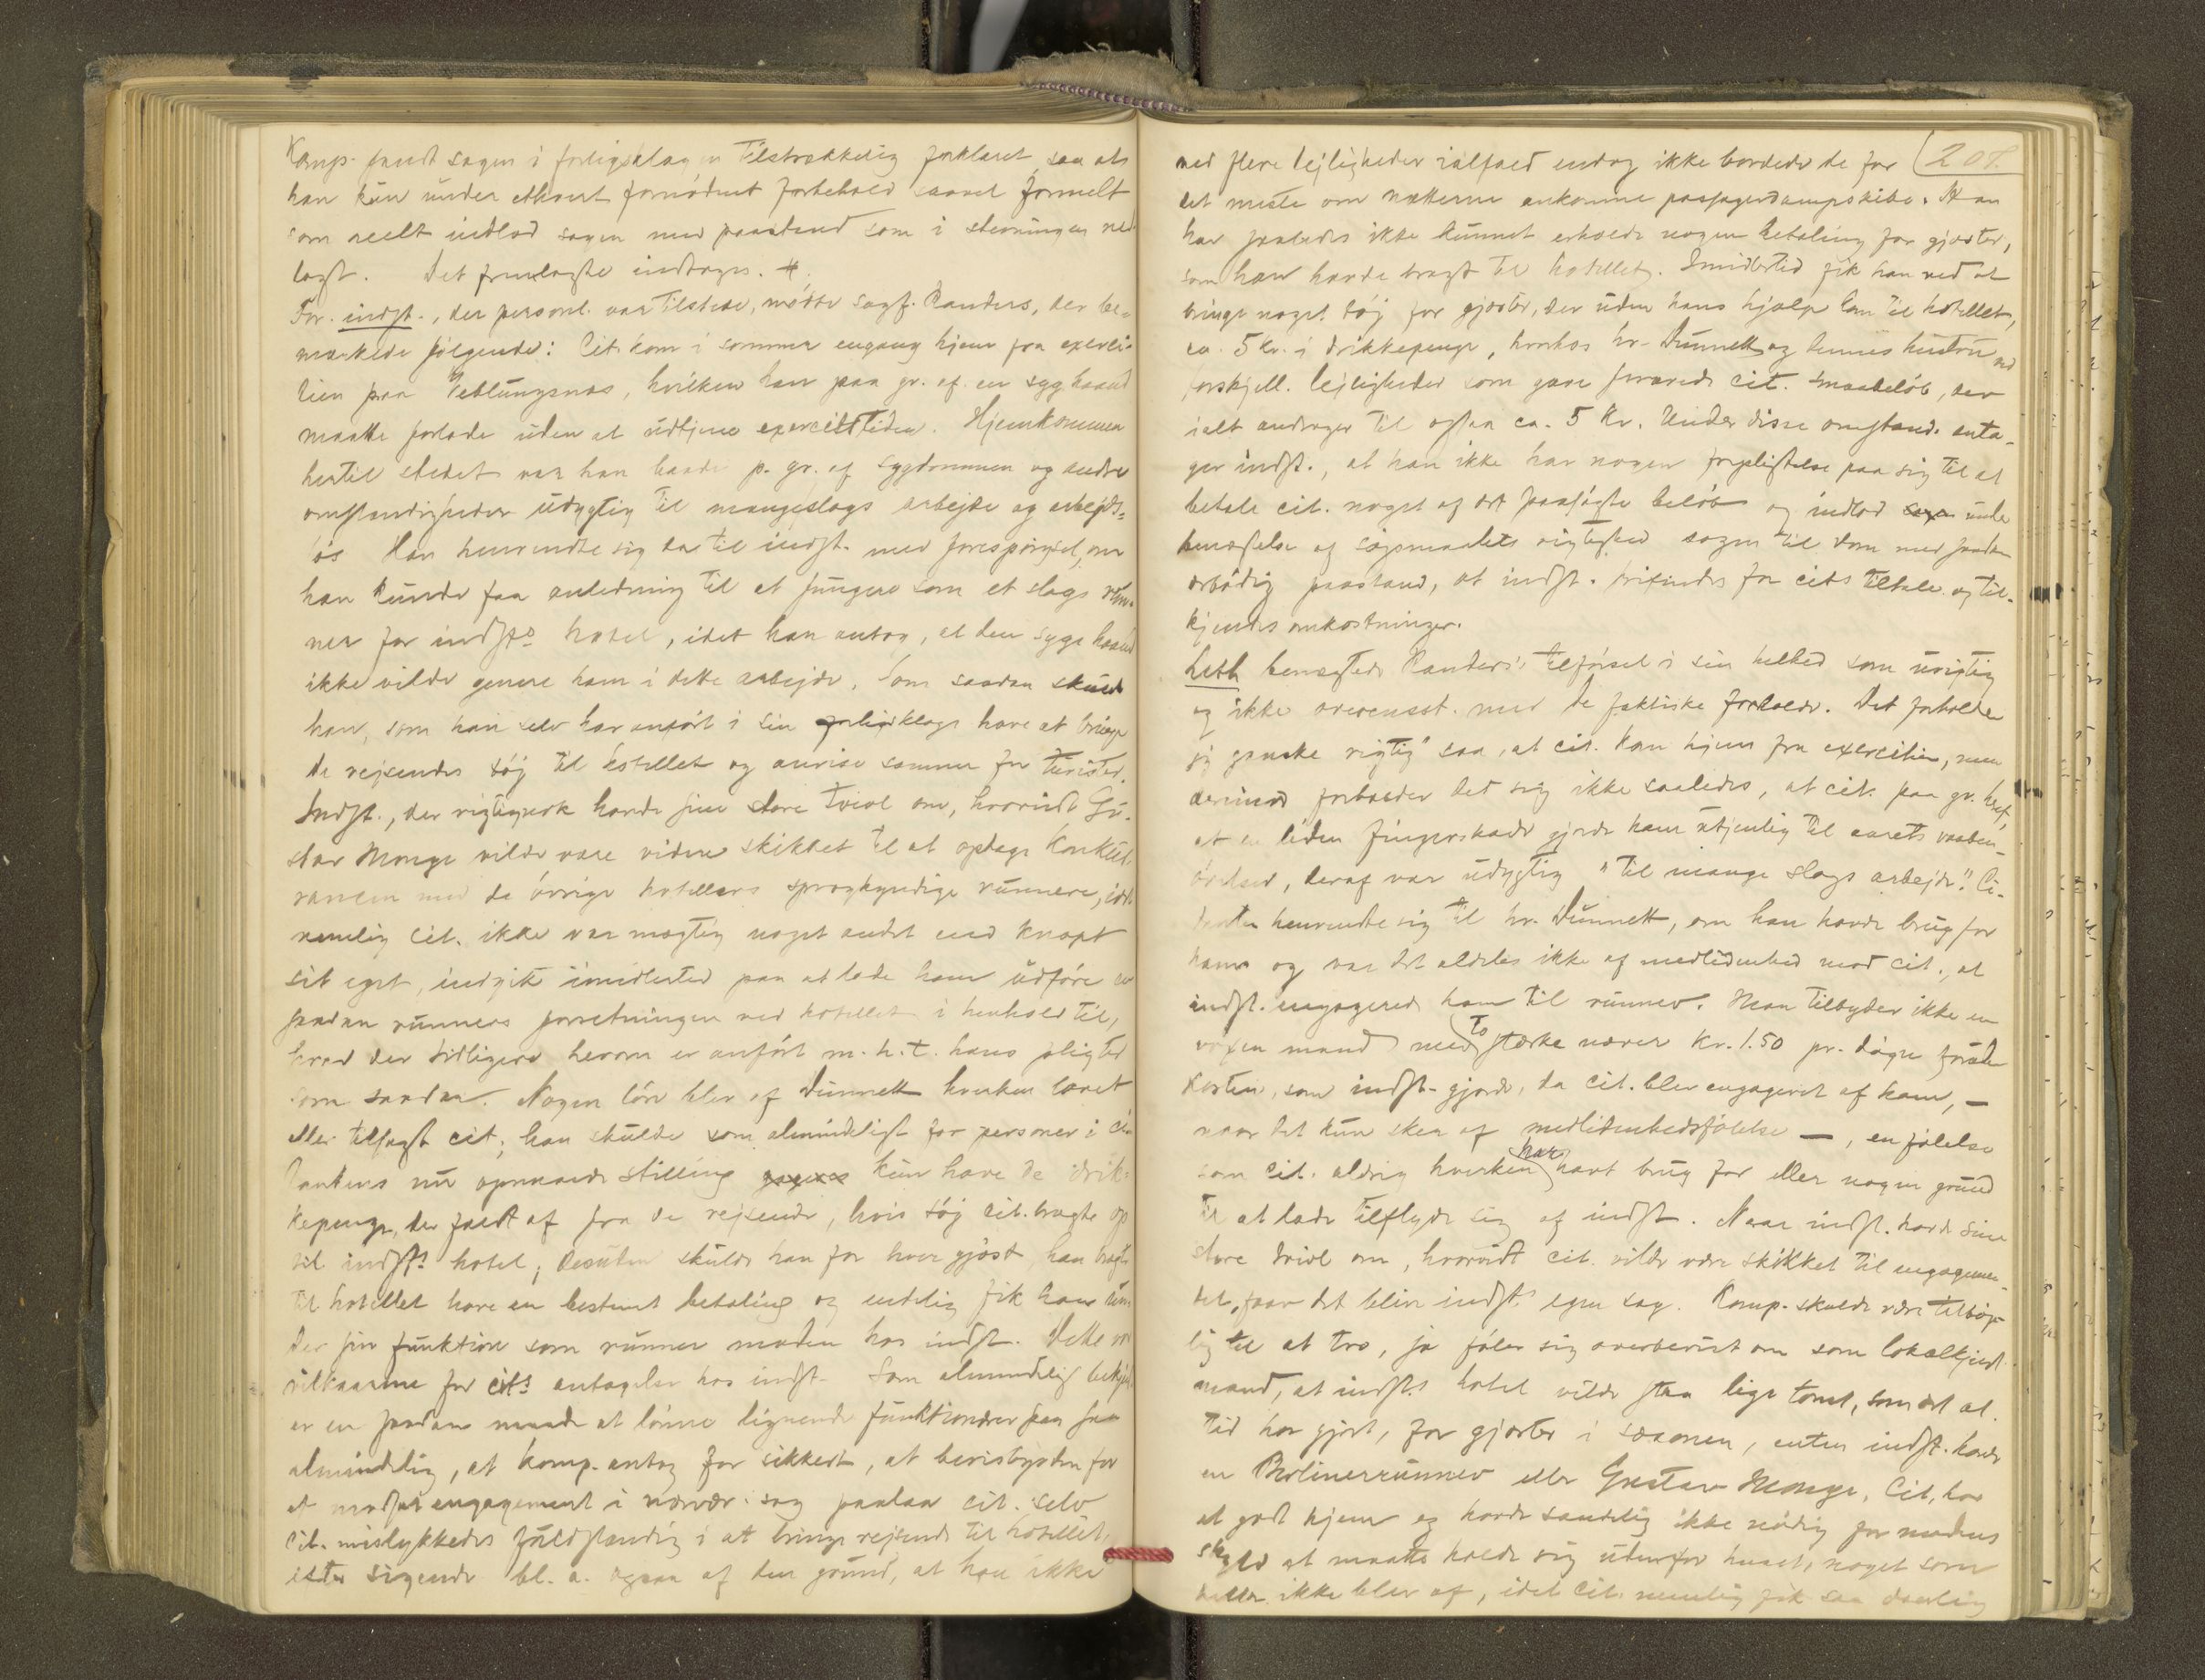 Komp. fandt sagen i forligsklagen tilstrækkelig forklaret, saa at
han kun under ethvert fornødent forbehold saavel formelt
som reelt indlod sagen med paastand som i stevningen ned
lagt. Det fremlagte indtages. #.
For indst., der personl. var tilstede, mødte sagf. Randers, der be=
mærkede følgende: Cit. kom i sommer engang hjem fra exerci-
tien paa Veblungsnæs, hvilken han paa gr. af en syg haand
maatte forlade uden at udtjene exercitstiden. Hjemkommen
hertil stedet var han baade p. gr. af sygdommen og andre
omstændigheder udygtig til mangeslags arbejde og arbejds=
løs Han henvendte sig da til indst. med forespørgsel, om
han kunde faa anledning til at fungere som et slags run-
ner for indst.s hotel, idet han antog, at den syge haand
ikke vilde genere ham i dette arbejde. Som saadan skulde
han, som han selv har anført i sin forligsklage have at bringe
de rejsendes tøj til hotellet og anvise samme for turister.
Indst., der rigtignok havde sine store tvivl om, hvorvidt Gu-
stav Monge vilde være videre skikket til at optage konkur-
rancen med de øvrige hotellers sprogkyndige runnere, idet
nemlig cit. ikke var mægtig noget andet end knapt
sit eget, indgik imidlertid paa at lade ham udføre en
saadan runners forretninger ved hotellet i henhold til,
hvad der tidligere herom er anført m. h. t. hans pligter
som saadan. Nogen løn blev af Dunnett hverken lovet
eller tilsagt cit.; han skulde som almindeligt for personer i ci-
tantens nu opnaaede stilling kun have de drik-
kepenge, der faldt af fra de rejsende, hvis tøj cit. bragte op
til indst.s hotel; desuden skulde han for hver gjæst, han bragte
til hotellet have en bestemt betaling og endelig fik han un-
der sin funktion som runner maden hos indst. Dette var
vilkaarene for cit.s antagelse hos indst. Som almindelig bekjendt
er en saadan maade at lønne lignende funktionærer paa saa
almindelig, at komp. antog for sikkert, at bevisbyrden for
et modsat engagement i nærvær. sag paalaa cit. selv
Cit. mislykkedes fuldstændig i at bringe rejsende til hotellet,
sigende bl. a. ogsaa af den grund, at han ikke
208.
ved flere lejligheder ialfald endog ikke bordede de for
det meste om nætterne ankomne passagerdampskibe. Han
har saaledes ikke kunnet erholde nogen betaling for gjæster,
som han havde bragt til hotellet. Imidlertid fik han ved at
bringe noget tøj for gjæster, der uden hans hjælp kom til hotellet,
ca. 5 kr. i drikkepenge, hvorhos hr. Dunnett og dennes hustru ved
forskjell. lejligheder som gave forærede cit. smaabeløb, der
ialt andrager til ogsaa ca. 5 kr. Under disse omstænd. anta-
ger indst., at han ikke har nogen forpligtelse paa sig til at
betale cit. noget af det paasøgte beløb og indlod under
benægtelse af søgsmaalets rigtighed sagen til dom med saadan
ærbødig paastand, at indst. frifindes for cits tiltale og til-
kjendes omkostninger.
Leth benægtede Randers' tilførsel i sin helhed som urigtig
og ikke overensst. med de faktiske forholde. Det forholder
sig ganske rigtig saa, at cit. kom hjem fra exercitien, men
derimod forholder det sig ikke saaledes, at cit. paa gr. heraf,
at en liden fingerskade gjorde ham utjenlig til aarets vaaben-
øvelser, deraf var udygtig "til mange slags arbejde." Ci-
tanten henvendte sig til hr. Dunnett, om han havde brug for
ham og var det aldeles ikke af medlidenhed mod cit., at
indst. engagerede ham til runner. Man tilbyder ikke en
voxen mand med to stærke næver kr. 1.50 pr. døgn foruden
kosten, som indst. gjorde, da cit. blev engageret af ham, —
naar det kun sker af medlidenhedsfølelse —, en følelse
som cit. aldrig hverken har havt brug for eller nogen grund
til at lade tilflyde sig af indst. Naar indst. havde sine
store tvivl om, hvorvidt cit. vilde være skikket til engagemen-
tet, faar det blive indst.s egen sag. Komp. skulde være tilbøje-
lig til at tro, ja føler sig overbevist om som lokalkjendt
mand, at indst.s hotel vilde staa lige tomt, som det al-
tid har gjort, for gjæster i sæsonen, enten indst. havde
en Berlinerrunner eller Gustav Monge. Cit. har
et godt hjem og havde sandelig ikke nødig for madens
skyld at maatte holde sig udenfor huset, noget som
heller ikke blev af, idet cit. nemlig fik saa daarlig